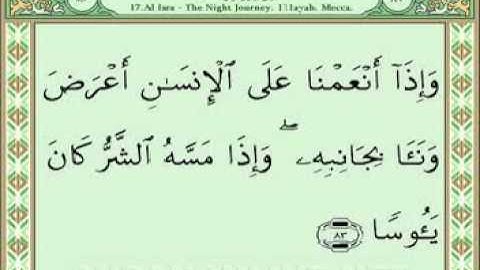 17.Al Isra - The Night Journey. Mecca.
وَإِذَآ أَنْعَمْنَا عَلَى ٱلْإِنسَـٰنِ أَعْرَضَ
وَنَـَٔا بِجَانِبِهِۦ ۖ وَإِذَا مَسَّهُ ٱلشَّرُّ كَانَ
يَـُٔوسًا ٨٣